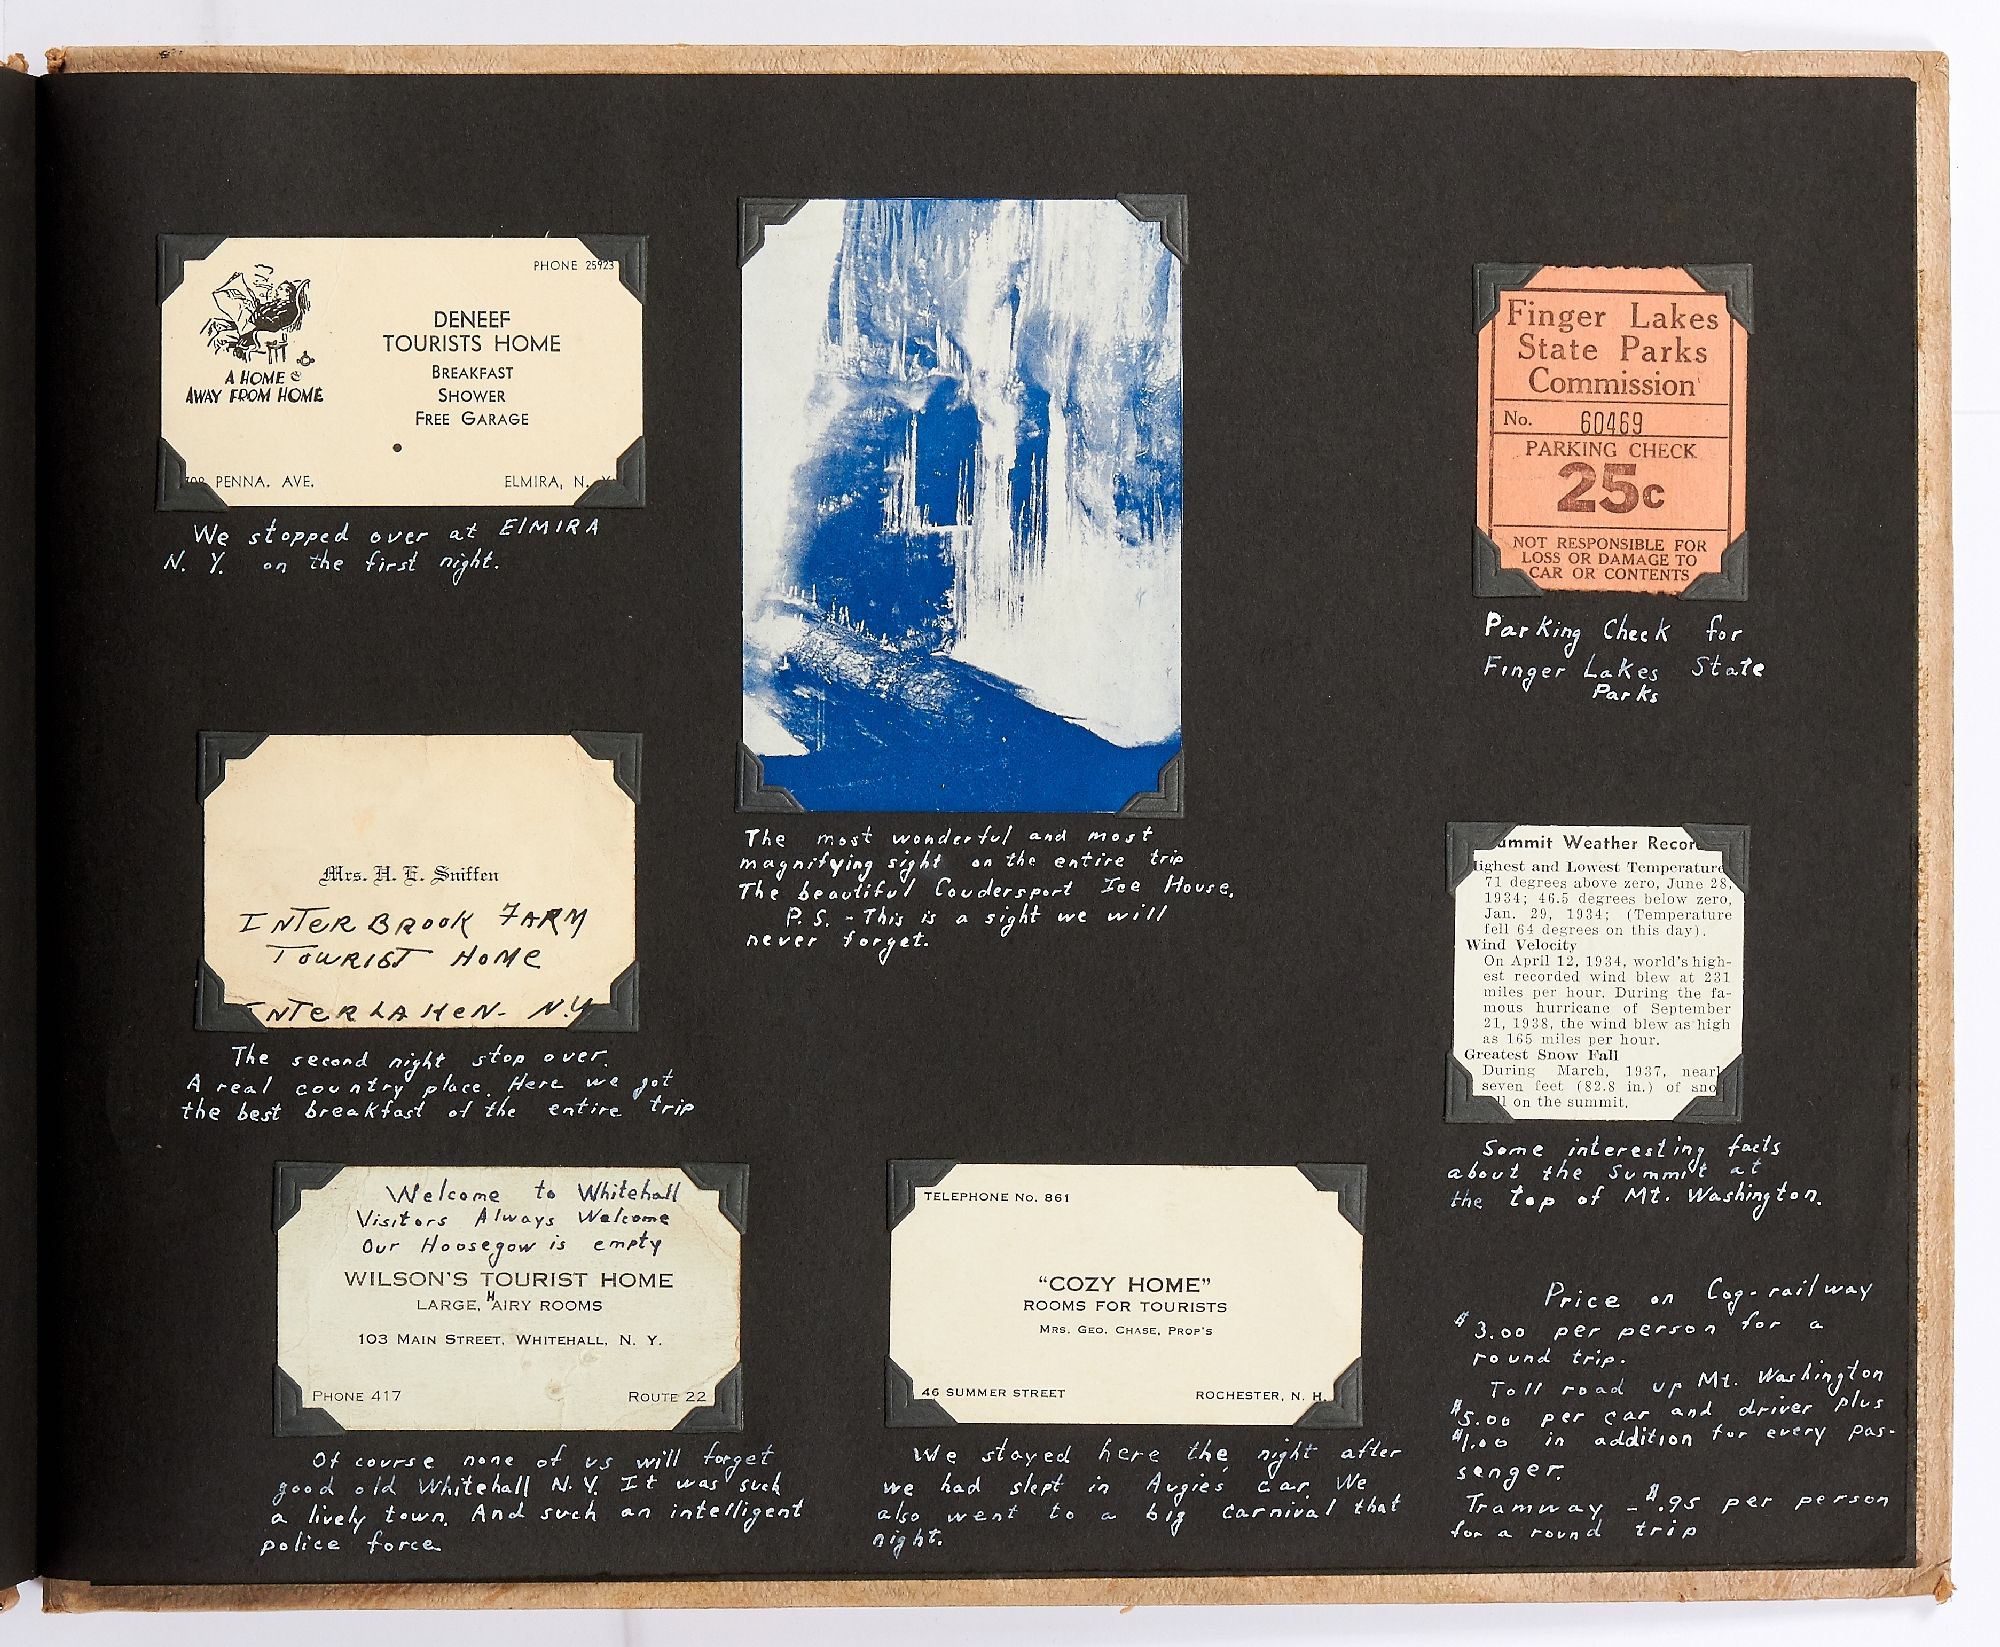 PHONE 25923
DENEEF
TOURISTS HOME
BREAKFAST
SHOWER
FREE GARAGE
A HOME
AWAY FROM HOME
PENNA. AVE.
ELMIRA, N. Y.
We stopped over at ElMIRA
N. Y. on the first night.
Mrs. H. E. Sniffen
INTER BROOK FARM
TOURIST HOME
INTERLAKEN - N.Y
The second night stop over.
A real country place. Here we got
the best breakfast of the entire trip
Welcome to Whitehall
Visitors Always Welcome
Our Hoosegow is empty
WILSON'S TOURIST HOME
LARGE, HAIRY ROOMS
103 MAIN STREET, WHITEHALL, N. Y.
PHONE 417
ROUTE 22
Of course none of us will forget
good old Whitehall N.Y. It was such
a lively town. And such an intelligent
police force
The most wonderful and most
magnifying sight on the entire trip
The beautiful Coudersport Ice House.
P. S. - This is a sight we will
never forget.
TELEPHONE No. 861
"COZY HOME"
ROOMS FOR TOURISTS
MRS. GEO. CHASE, PROP'S
46 SUMMER STREET
ROCHESTER, N. H.
We stayed here the night after
we had slept in Augie's car. We
also went to a big carnival that
night.
Finger Lakes
State Parks
Commission
No. 60469
PARKING CHECK
25c
NOT RESPONSIBLE FOR
LOSS OR DAMAGE TO
CAR OR CONTENTS
Parking Check for
Finger Lakes State
Parks
ummit Weather Recor
ighest and Lowest Temperature
71 degrees above zero, June 28,
1934; 46.5 degrees below zero,
Jan. 29, 1934; (Temperature
fell 64 degrees on this day).
Wind Velocity
On April 12, 1934, world's high-
est recorded wind blew at 231
miles per hour. During the fa-
mous hurricane of September
21, 1938, the wind blew as high
as 165 miles per hour.
Greatest Snow Fall
During March, 1937, nearl
seven feet (82.8 in.) of sno
ll on the summit.
Some interesting facts
about the summit at
the top of Mt. Washington.
Price on Cog-railway
$3.00 per person for a
round trip.
Toll road up Mt. Washington
$5.00 per car and driver plus
$1.00 in addition for every pas-
senger.
Tramway - $.95 per person
for a round trip